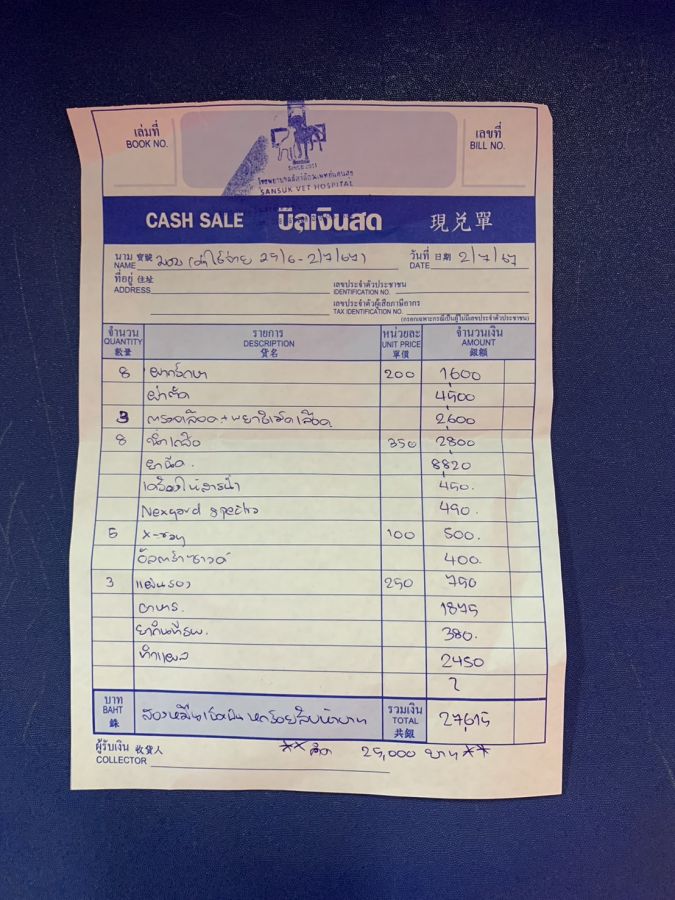 เล่มที่
BOOK NO.
เลขที่
BILL NO.
SINCE 2011
โรงพยาบาลสัตว์สัตวแพทย์แสนสุข
SANSUK VET HOSPITAL
CASH SALE บิลเงินสด 現兑單
นาม 寶號 NAME มอม (ค่าใช้จ่าย 29/6 - 2/7/67) วันที่ 日期 DATE 2/7/67
ที่อยู่ 住址 ADDRESS
เลขประจำตัวประชาชน IDENTIFICATION NO.
เลขประจำตัวผู้เสียภาษีอากร TAX IDENTIFICATION NO.
(กรอกเฉพาะกรณีเป็นผู้ไม่มีเลขประจำตัวประชาชน)
จำนวน QUANTITY 數量 รายการ DESCRIPTION 貨名 หน่วยละ UNIT PRICE 單價 จำนวนเงิน AMOUNT 銀額
8 ฝากรักษา 200 1,600
ผ่าตัด 4,500
3 ตรวจเลือด + พยาธิเม็ดเลือด 2,600
8 น้ำเกลือ 350 2,800
ยาฉีด. 8,820
เครื่องให้สารน้ำ 450.
Nexgard spectra 490.
5 X-ray 100 500.
อัลตร้าซาวด์ 400.
3 แผ่นรอง 250 750
อาหาร. 1,875
ยากินที่รพ. 380.
ทำแผล 2450
บาท BAHT 銖 สองหมื่นเจ็ดพันหกร้อยสิบห้าบาท รวมเงิน TOTAL 共銀 27,615
ผู้รับเงิน 收貨人 COLLECTOR
** คิด 25,000 บาท **